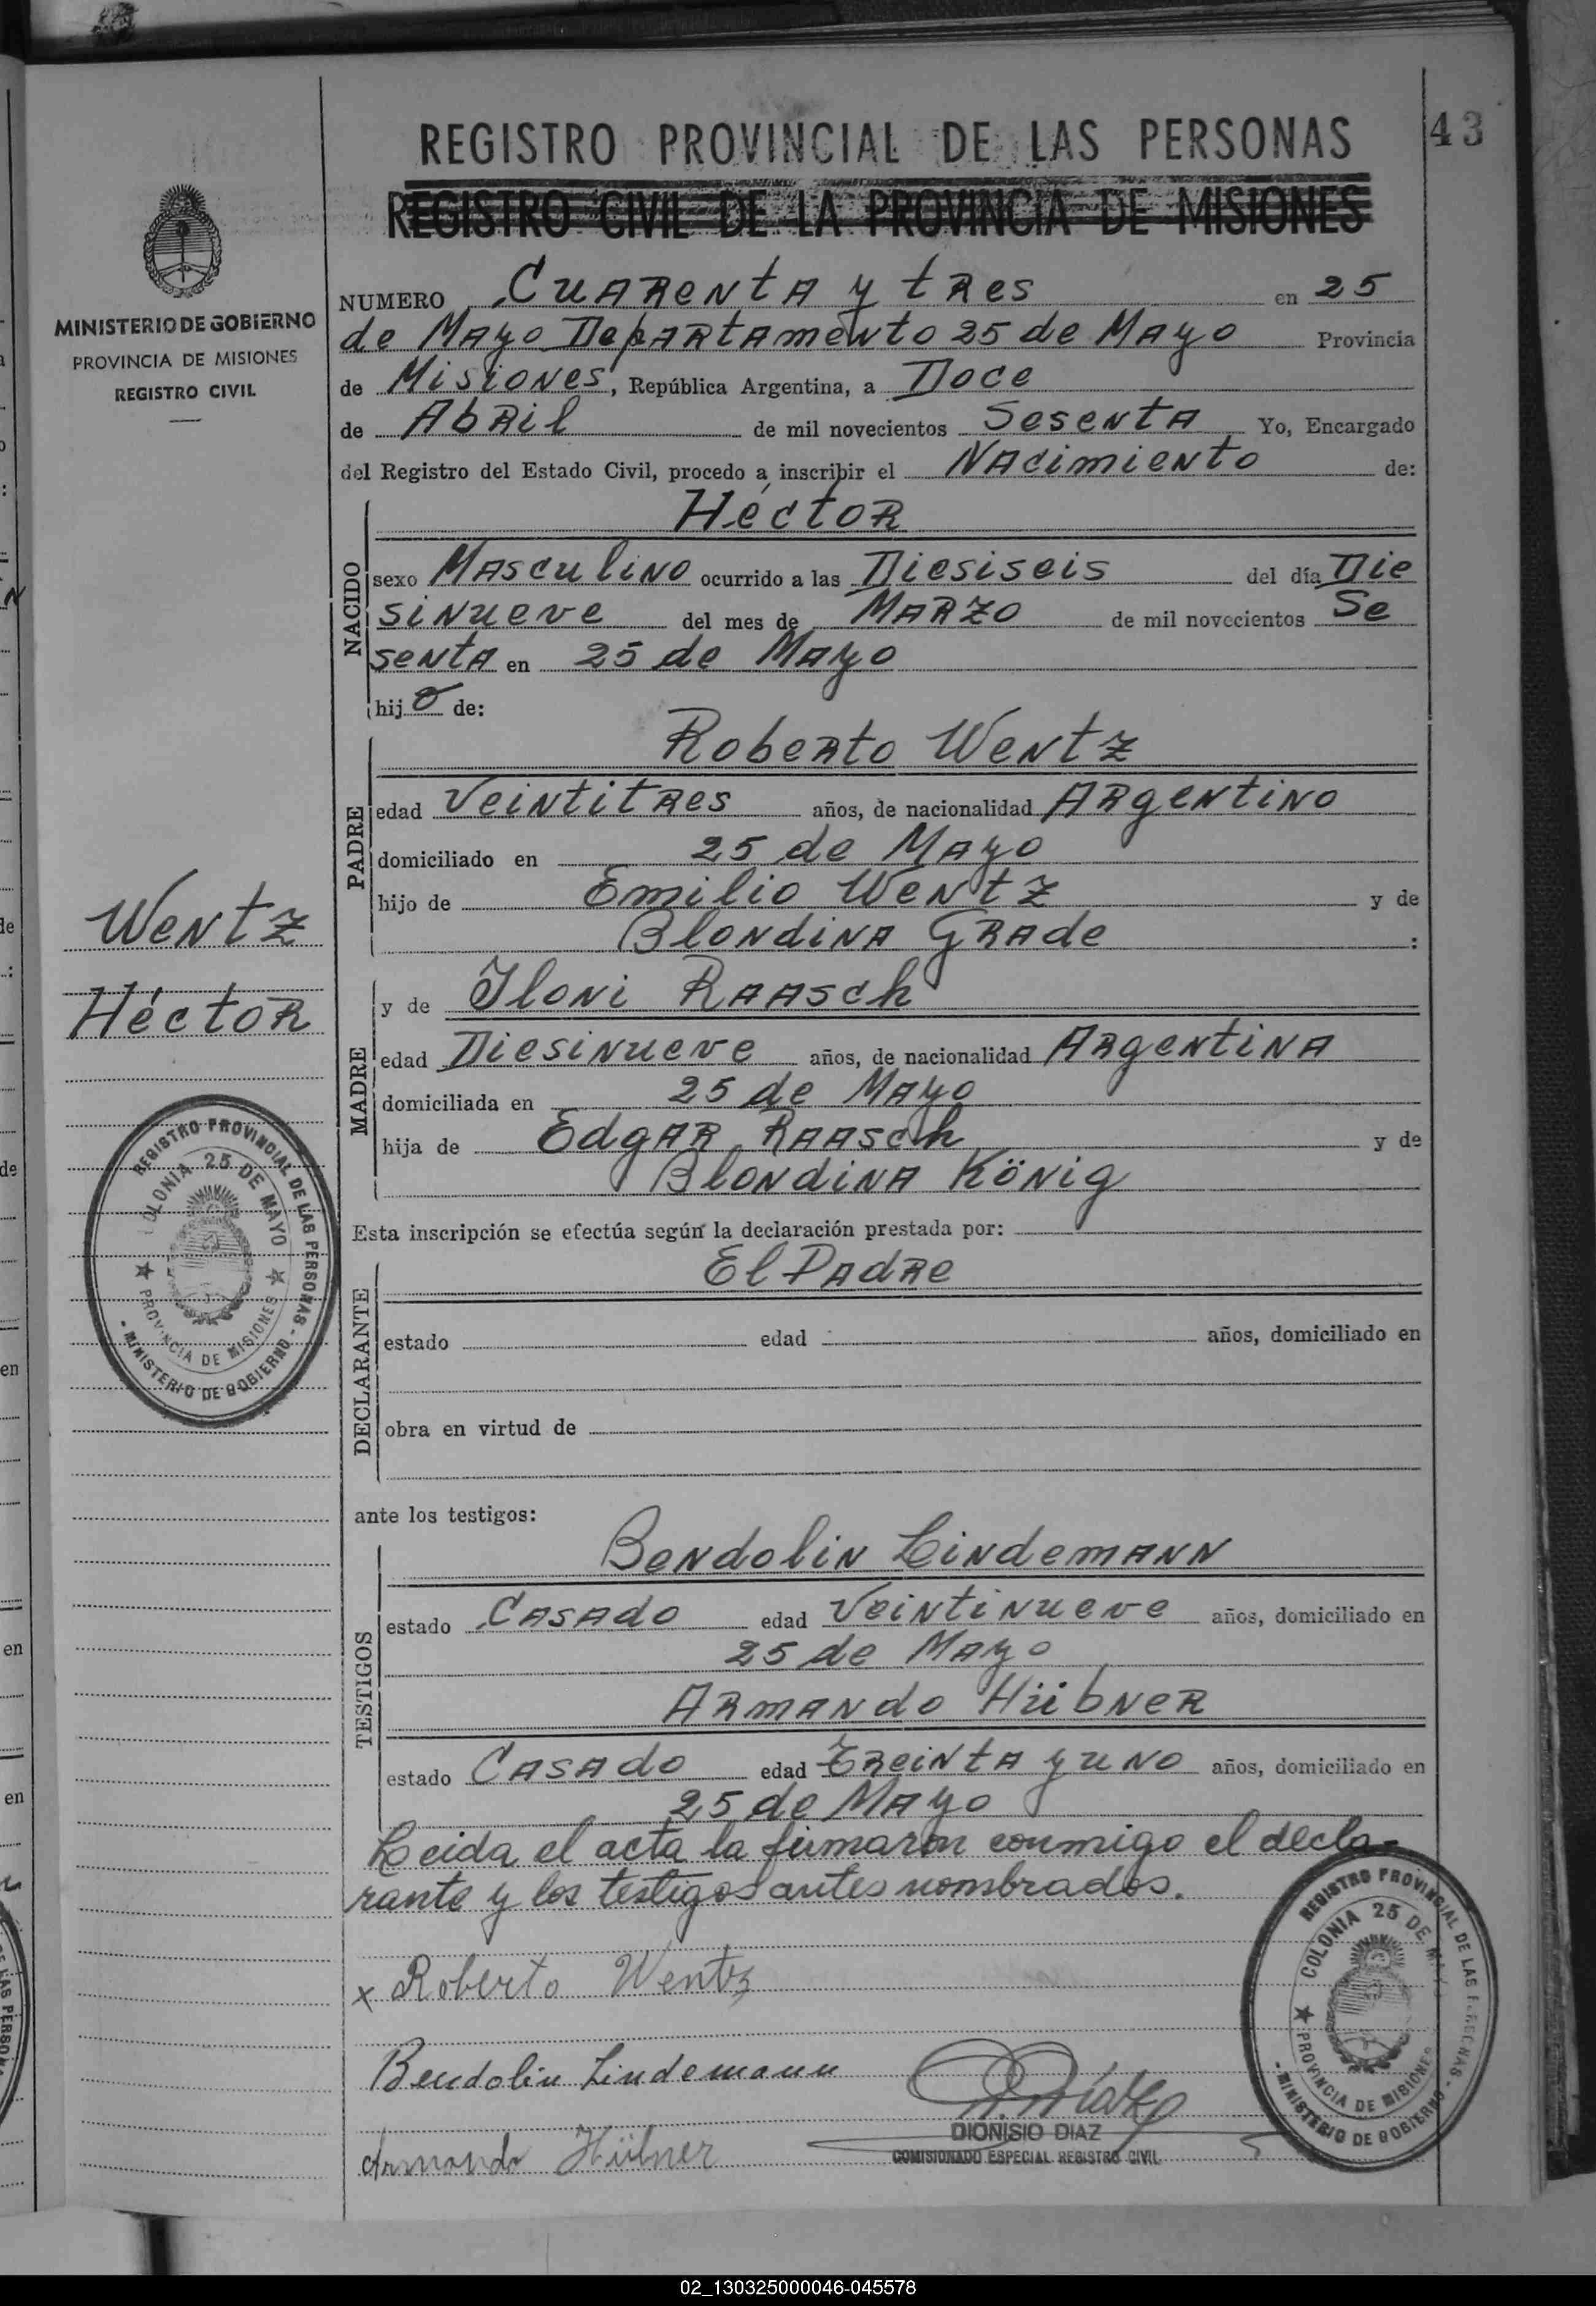 43
REGISTRO PROVINCIAL DE LAS PERSONAS
REGISTRO CIVIL DE LA PROVINCIA DE MISIONES
MINISTERIO DE GOBIERNO
PROVINCIA DE MISIONES
REGISTRO CIVIL
NUMERO Cuarenta y tres en 25
de Mayo Departamento 25 de Mayo Provincia
de Misiones, República Argentina, a Doce
de Abril de mil novecientos Sesenta Yo, Encargado
del Registro del Estado Civil, procedo a inscribir el Nacimiento de:
NACIDO
Héctor
sexo Masculino ocurrido a las Diesiseis del día Die
sinueve del mes de Marzo de mil novecientos Se
senta en 25 de Mayo
hijo de:
PADRE
Roberto Wentz
edad Veintitres años, de nacionalidad Argentino
domiciliado en 25 de Mayo
hijo de Emilio Wentz y de
Blondina Grade :
Wentz
Héctor
MADRE
y de Iloni Raasch
edad Diesinueve años, de nacionalidad Argentina
domiciliada en 25 de Mayo
hija de Edgar Raasch y de
Blondina König
Esta inscripción se efectúa según la declaración prestada por:
DECLARANTE
El Padre
estado edad años, domiciliado en
obra en virtud de
REGISTRO PROVINCIAL DE LAS PERSONAS
COLONIA 25 DE MAYO
PROVINCIA DE MISIONES
- MINISTERIO DE GOBIERNO -
ante los testigos:
TESTIGOS
Bendolin Lindemann
estado Casado edad Veintinueve años, domiciliado en
25 de Mayo
Armando Hübner
estado Casado edad Treinta y uno años, domiciliado en
25 de Mayo
Leida el acta la firmaron conmigo el decla-
rante y los testigos antes nombrados.
x Roberto Wentz
Bendolin Lindemann
Armando Hübner
D. Diaz
DIONISIO DIAZ
COMISIONADO ESPECIAL REGISTRO CIVIL
REGISTRO PROVINCIAL DE LAS PERSONAS
COLONIA 25 DE MAYO
PROVINCIA DE MISIONES
- MINISTERIO DE GOBIERNO -
02_130325000046-045578